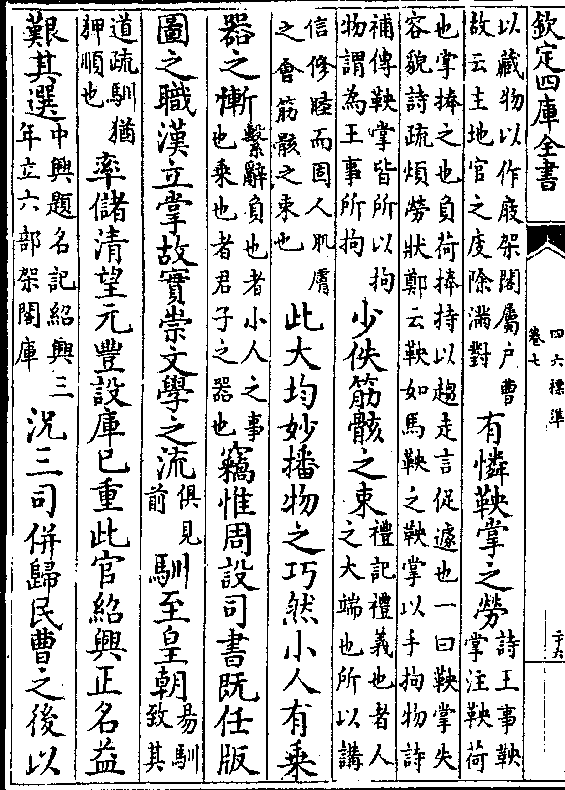 欽定四庫全書
四六標準
卷七
二十六
以藏物以作庋架閣屬戶曹
故云主地官之庋除滿對
有憐鞅掌之勞
詩王事鞅
掌注鞅荷
也掌捧之也負荷捧持以趨走言促遽也一曰鞅掌失
容貌詩疏煩勞狀鄭云鞅如馬鞅之鞅掌以手拘物詩
補傳鞅掌皆所以拘
物謂為王事所拘
少佚筋骸之束
禮記禮義也者人
之大端也所以講
信修睦而固人肌膚
之會筋骸之束也
此大均妙播物之巧然小人有乘
器之慚
繫辭負也者小人之事
也乘也者君子之器也
竊惟周設司書既任版
圖之職漢立掌故實崇文學之流
俱見
前
馴至皇朝
易馴
致其
道疏馴猶
狎順也
率儲清望元豐設庫已重此官紹興正名益
艱其選
中興題名記紹興三
年立六部架閣庫
況三司併歸民曹之後以